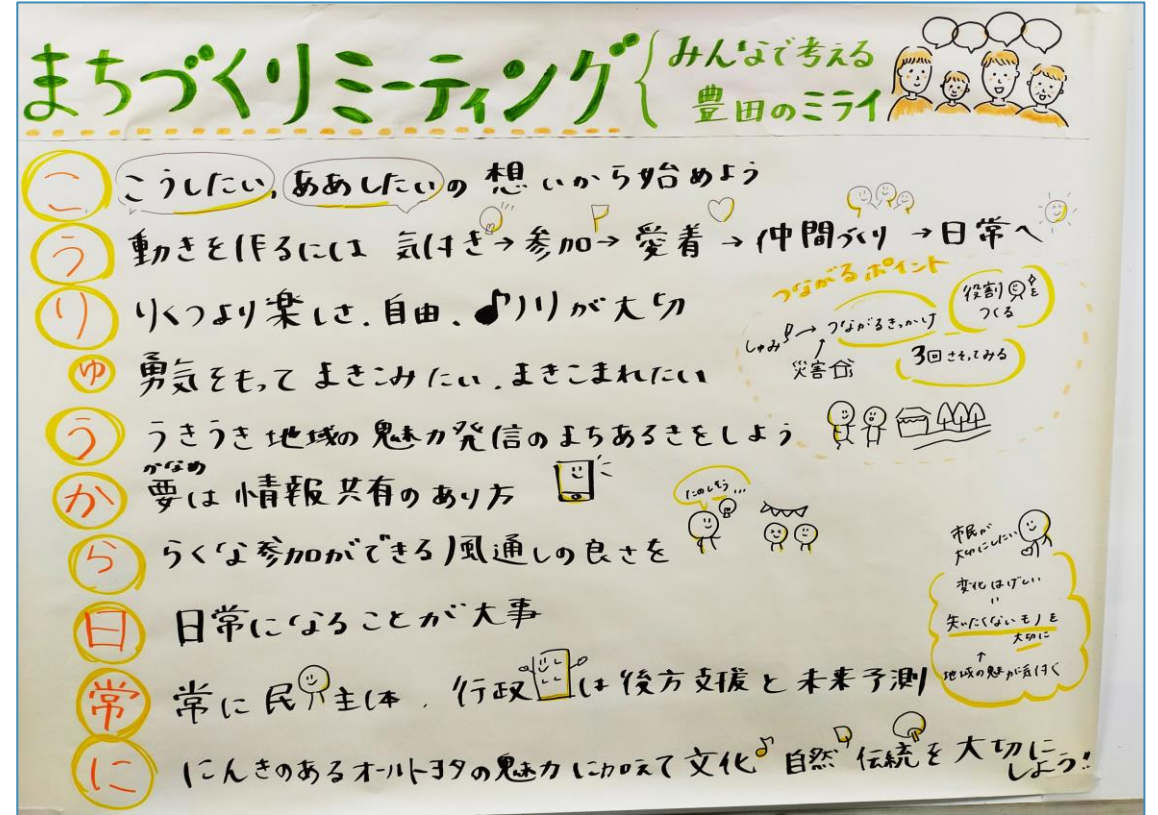 まちづくりミーティング
みんなで考える
豊田のミライ
こ こうしたい、ああしたいの想いから始めよう
う 動きを作るには 気付き→参加→愛着→仲間づくり→日常へ
り りくつより楽しさ、自由、♪ノリが大切
ゅ 勇気をもって まきこみたい、まきこまれたい
う うきうき地域の魅力発信のまちあるきをしよう
か 要は情報共有のあり方
かなめ
ら らくな参加ができる風通しの良さを
日 日常になることが大事
常 常に民主体、行政は後方支援と未来予測
に にんきのあるオールトヨタの魅力に加えて文化♪自然伝統を大切にしよう!
つながるポイント
しゅみ→つながるきっかけ
災害
役割を
つくる
3回さそってみる
たのしそう…
市民が
大切にしたい
変化はげしい
〃
失いたくないモノを
大切に
↑
地域の魅力気付く